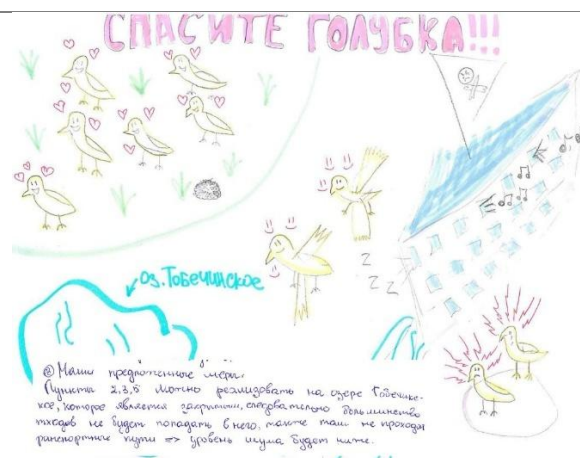 СПАСИТЕ ГОЛУБКА!!!
оз. Тобечинское
z z z
② Наши предложенные меры.
Пункты 2,3,5 можно реализовать на озере Тобечикс-
кое, которое является закрытым, следовательно большинство
отходов не будет попадать в него, также там не проходят
транспортные пути => уровень шума будет ниже.